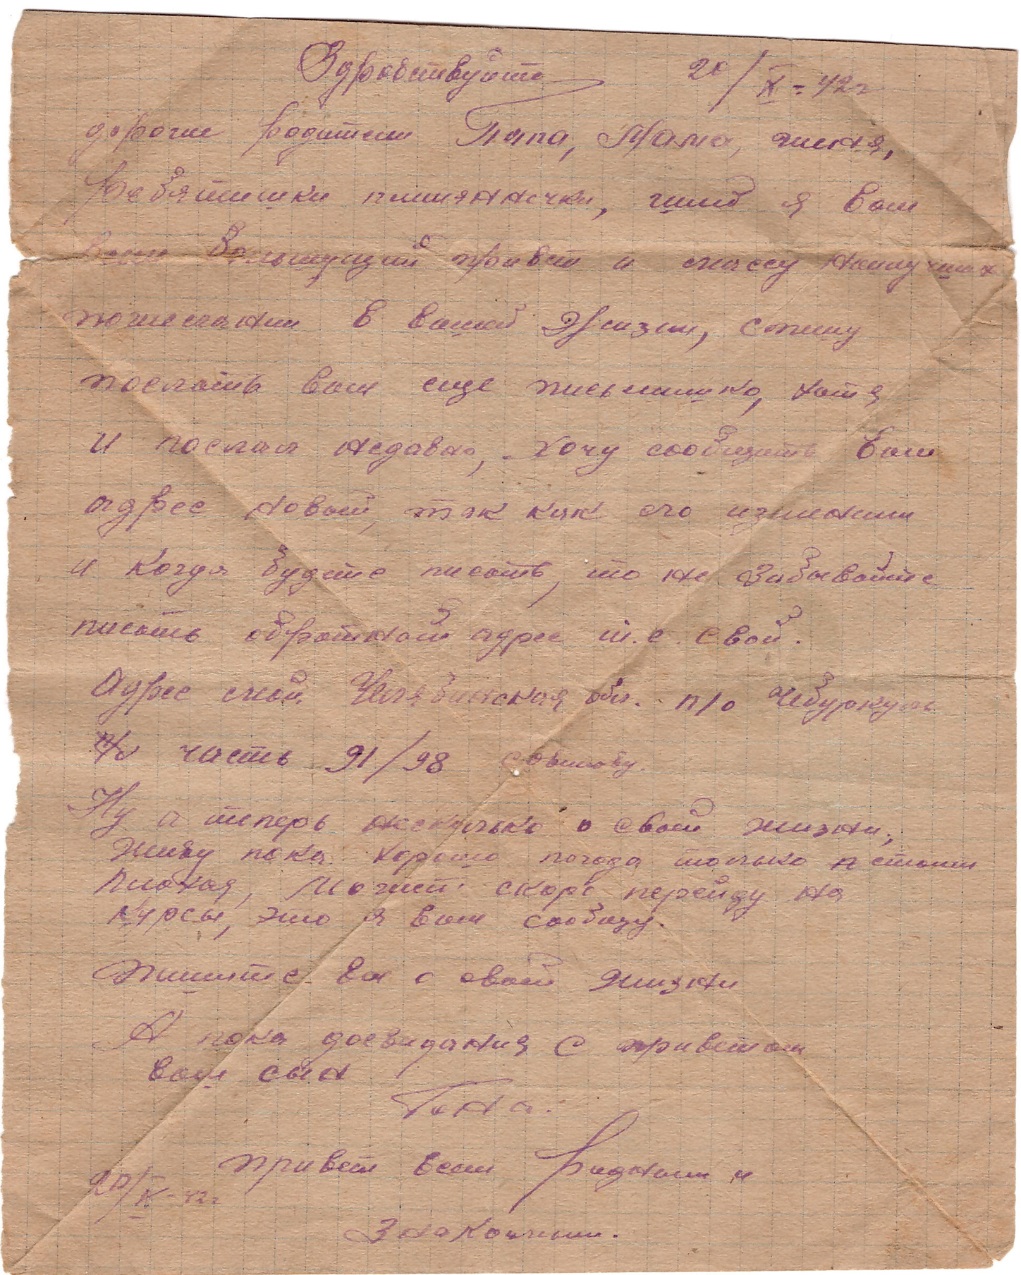 Здравствуйте 20/IX-42г
дорогие родители Папа, Мама,
Ребятишки племяннички, шлю я Вам
Вам Большущий привет и массу наилучших
пожеланий в вашей Жизни, спешу
послать вам еще письмишко, хотя
и послал недавно, хочу сообщить Вам
адрес новый, так как его изменили
и когда будете писать, то не забывайте
писать обратный адрес т.е. свой.
Адрес мой Челябинская обл. п/о Чебуркуль
п/я часть 91/98
Ну а теперь несколько о своей жизни,
живу пока хорошо погода только
плохая, Может скоро перейду на
курсы, это я вам сообщу.
Пишите вы о своей жизни
А пока досвидания с приветом
Ваш сын
Гена.
привет всем Родным и
20/IX-42г
Знакомым.